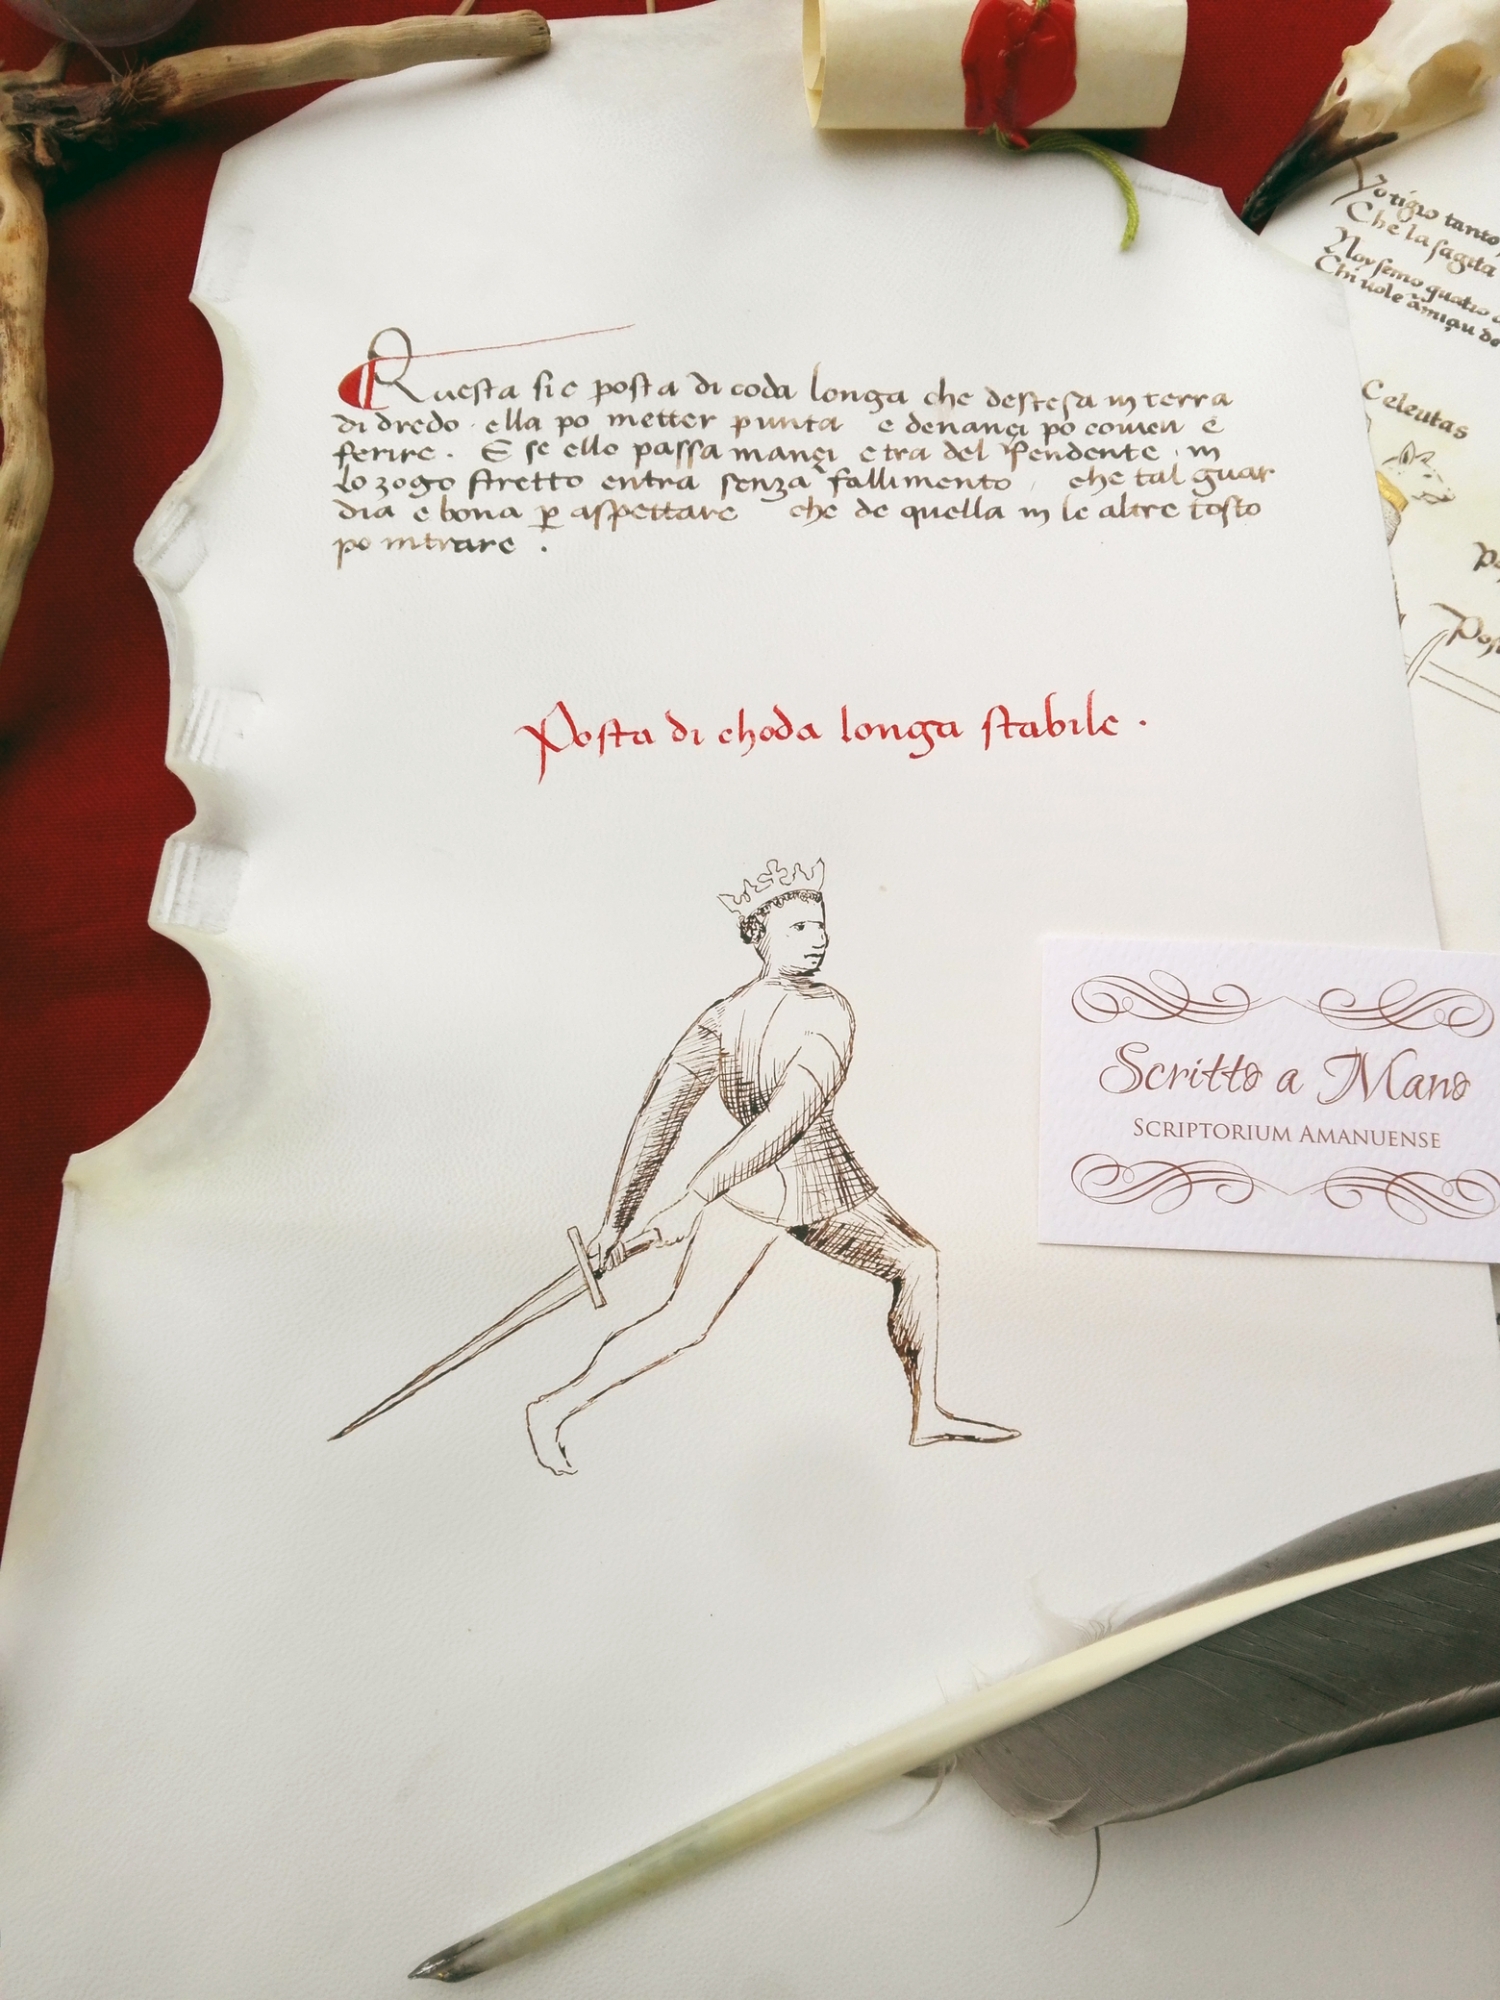 Questa sie posta di coda longa che destesa in terra
di dredo ella po metter punta e denançi po couerir e
ferire . E se ello passa inançi e tra del fendente in
lo zogo stretto entra senza fallimento che tal guar
dia e bona p aspettare che de quella in le altre tosto
po intrare .
Posta di choda longa stabile .
Yo tigro tanto
Che la sagita
Noy semo quatro
Chi uole
Celeutas
Scritto a Mano
SCRIPTORIUM AMANUENSE